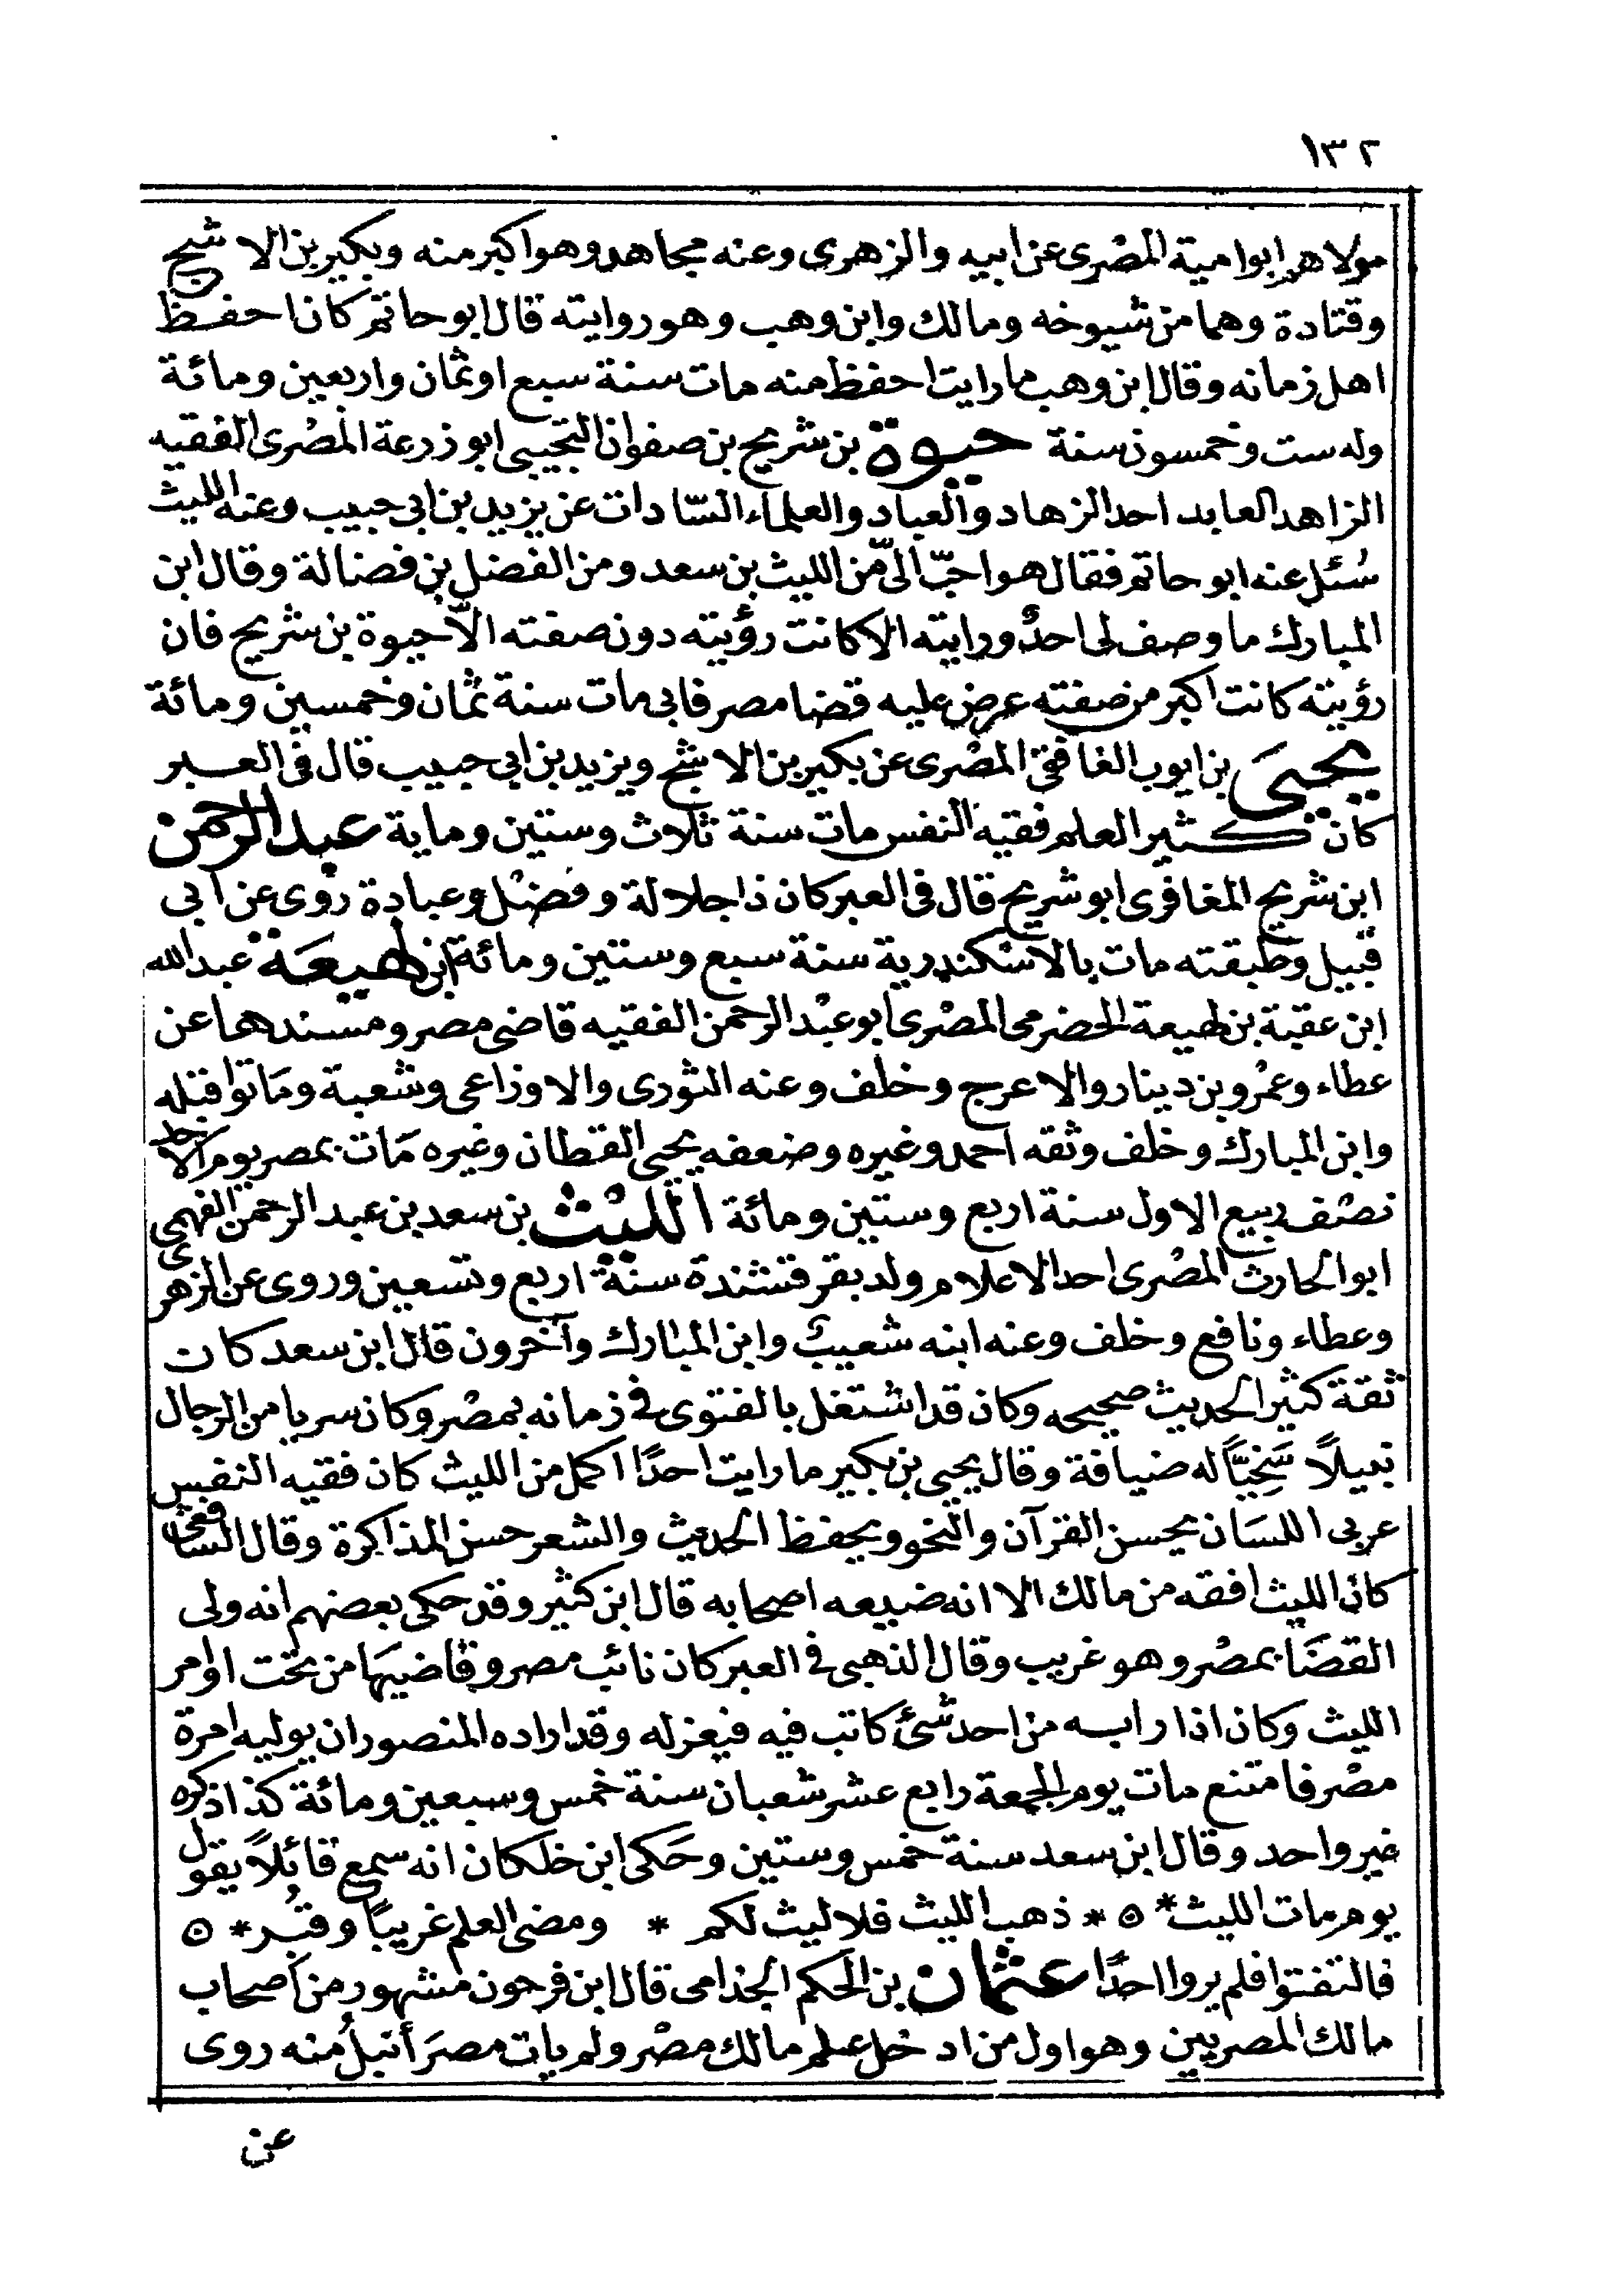 ١٣٢
مولاهم ابوامية المصرى عن ابيه والزهرى وعنه مجاهد وهو اكبر منه وبكير بن الاشج
وقتادة وهما من شيوخه ومالك وابن وهب وهو روايته قال ابو حاتم كان احفظ
اهل زمانه وقال ابن وهب ما رايت احفظ منه مات سنة سبع او ثمان واربعين ومائة
وله ست وخمسون سنة حيوة بن شريح بن صفوان التجيبى ابو زرعة المصرى الفقيه
الزاهد العابد احد الزهاد والعباد والعلماء السّادات عن يزيد بن ابى حبيب وعنه الليث
سُئل عنه ابو حاتم فقال هو احبّ الىّ من الليث بن سعد ومن الفضل بن فضالة وقال ابن
المبارك ما وصف لى احدٌ ورايته الا كانت رؤيته دون صفته الّا حيوة بن شريح فان
رؤيته كانت اكبر من صفته عرض عليه قضا مصر فابى مات سنة ثمان وخمسين ومائة
يحيىَ بن ايوب الغافقى المصرى عن بكير بن الاشج ويزيد بن ابى حبيب قال فى العبر
كان كثير العلم فقيه النفس مات سنة ثلاث وستين وماية عبد الرحمن
ابن شريح المغافرى ابو شريح قال فى العبر كان ذا جلالة وفضل وعبادة روى عن ابى
قبيل وطبقته مات بالاسكندرية سنة سبع وستين ومائة ابن لهيعَة عبد الله
ابن عقبة بن لهيعة الحضرمى المصرى ابو عبد الرحمن الفقيه قاضى مصر ومسندها عن
عطاء وعمرو بن دينار والاعرج وخلف وعنه الثورى والاوزاعى وشعبة ومَاتوا قبله
وابن المبارك وخلف وثقه احمد وغيره وضعفه يحيى القطان وغيره مَات بمصر يوم الاحد
نصف ربيع الاول سنة اربع وستين ومائة الليث بن سعد بن عبد الرحمن الفهمى
ابو الحارث المصرى احد الاعلام ولد بقرقشندة سنة اربع وتسعين وروى عن الزهرى
وعطاء ونافع وخلف وعنه ابنه شعيب وابن المبارك وآخرون قال ابن سعد كان
ثقة كثير الحديث صحيحه وكان قد اشتغل بالفتوى فى زمانه بمصر وكان سريا من الرجال
نبيلاً سَخِيًّا له ضيافة وقال يحيى بن بكير ما رايت احدًا اكمل من الليث كان فقيه النفس
عربى اللسَان يحسن القرآن والنحو ويحفظ الحديث والشعر حسن المذاكرة وقال الشافعى
كان الليث افقه من مالك الا انه ضيعه اصحابه قال ابن كثير وقد حكى بعضهم انه ولى
القضَا بمصر وهو غريب وقال الذهبى فى العبر كان نائب مصر وقاضيهَا من تحت اوامر
الليث وكان اذا رابه من احد شئ كاتب فيه فيعزله وقد اراده المنصور ان يوليه امرة
مصر فامتنع مات يوم الجمعة رابع عشر شعبان سنة خمس وسبعين ومائة كذا ذكره
غير واحد وقال ابن سعد سنة خمس وستين وحَكى ابن خلكان انه سمع قائلاً يقول
يوم مات الليث * ٥ * ذهب الليث فلا ليث لكم * ومضى العلم غريبًا وقُبر * ٥
فالتفتوا فلم يروا احدًا عثمان بن الحكم الجذامى قال ابن فرحون مشهور من اصحاب
مالك المصريين وهو اول من ادخل علم مالك مصر ولم يات مصرَ أنبلُ منه روى
عن